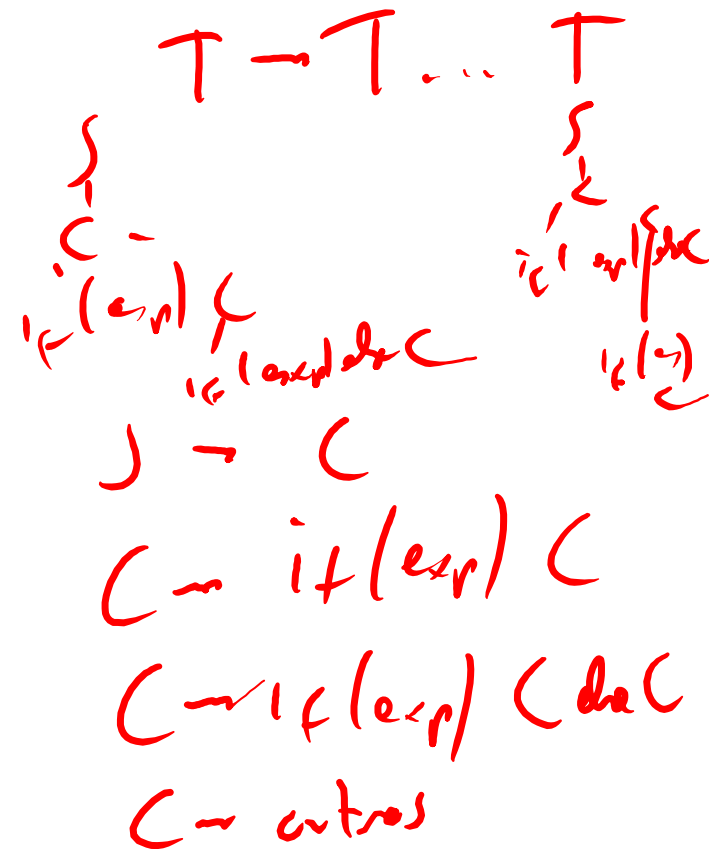 T → T ... T
S S
C - C
if (exp) C if (exp) else C
if (exp) else C if (e)
C
S → C
C → if (exp) C
C → if (exp) C else C
C → outros